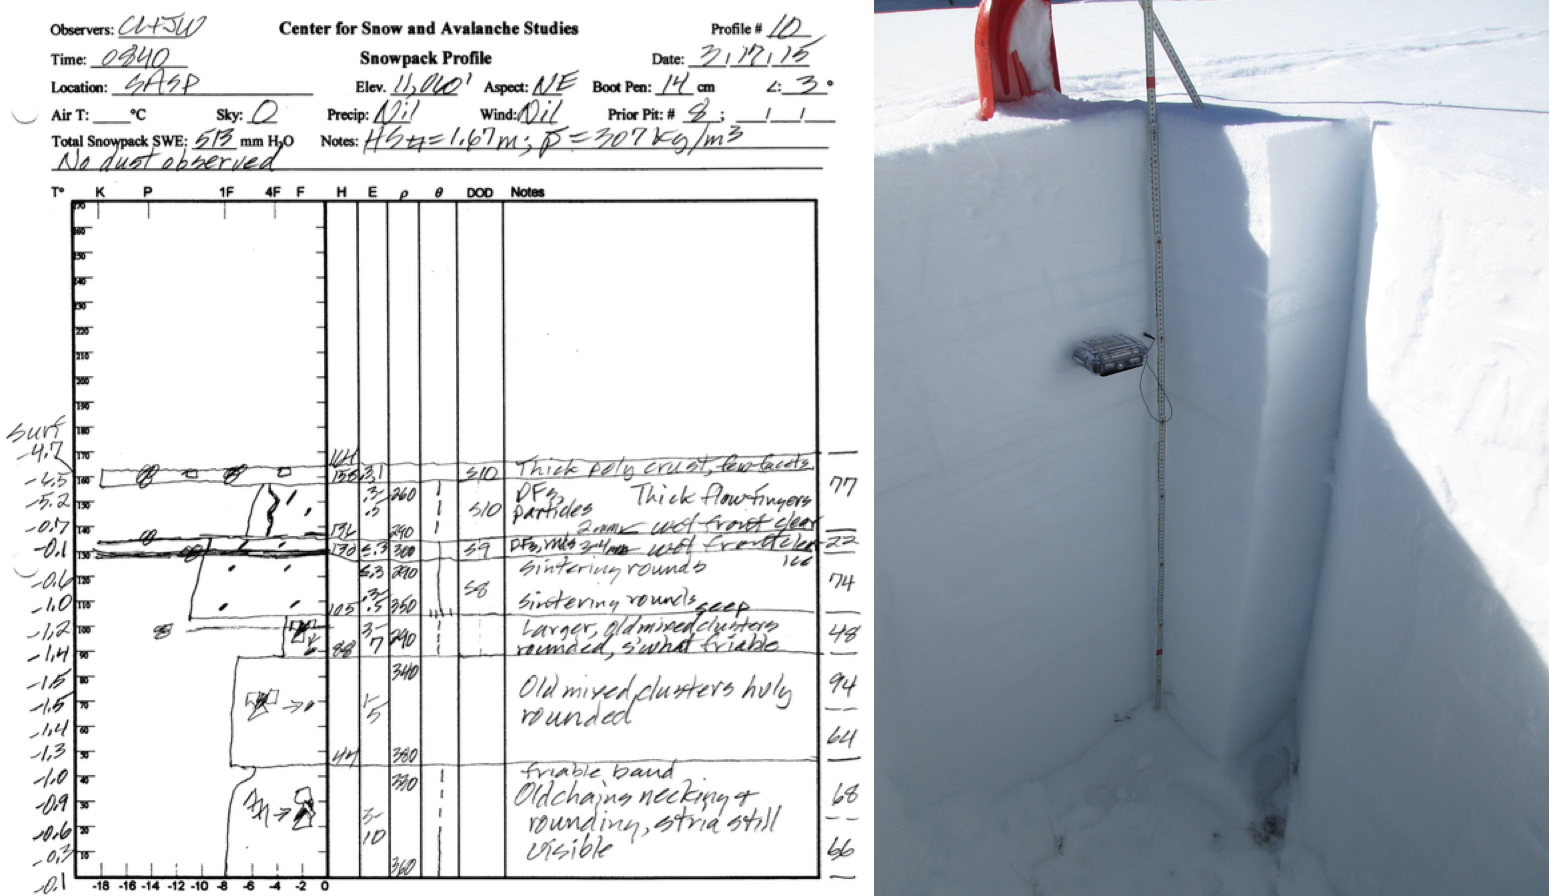 Observers: CL+JW Center for Snow and Avalanche Studies Profile # 10
Time: 0840 Snowpack Profile Date: 3,17,15
Location: SASP Elev. 11,060' Aspect: NE Boot Pen: 14 cm ∠: 3 °
Air T: ____ °C Sky: O Precip: Nil Wind: Nil Prior Pit: # 8 ; | |
Total Snowpack SWE: 513 mm H₂O Notes: HS = 1.67m; ρ = 307 kg/m3
No dust observed
T° K P 1F 4F F H E ρ θ DOD Notes
260
250
240
230
220
210
200
190
surf 180
-4.7 170 164
-4.5 160 155 3,1 S10 Thick poly crust, few facets
-5.2 150 .3- .5 260 S10 DFs, particles Thick flow fingers 77
-0.7 140 290 2mm wet front clear
-0.1 130 130 300 S9 DFs, 3-4mm wet front clear ice 22
-0.6 120 290 sintering rounds
-1.0 110 105 .3- .5 350 S8 sintering rounds seep 74
-1.2 100 3- 7 290 Larger, old mixed clusters 48
-1.4 90 88 rounded, s'what friable
-1.5 80 340
-1.5 70 1- 5 Old mixed clusters 94
-1.4 60 rounded
-1.3 50 44 380 64
-1.0 40 390 friable band
-0.9 30 3- 10 Old chains necking + 68
-0.6 20 rounding, stria still
-0.3 10 360 visible 66
-0.1
-18 -16 -14 -12 -10 -8 -6 -4 -2 0